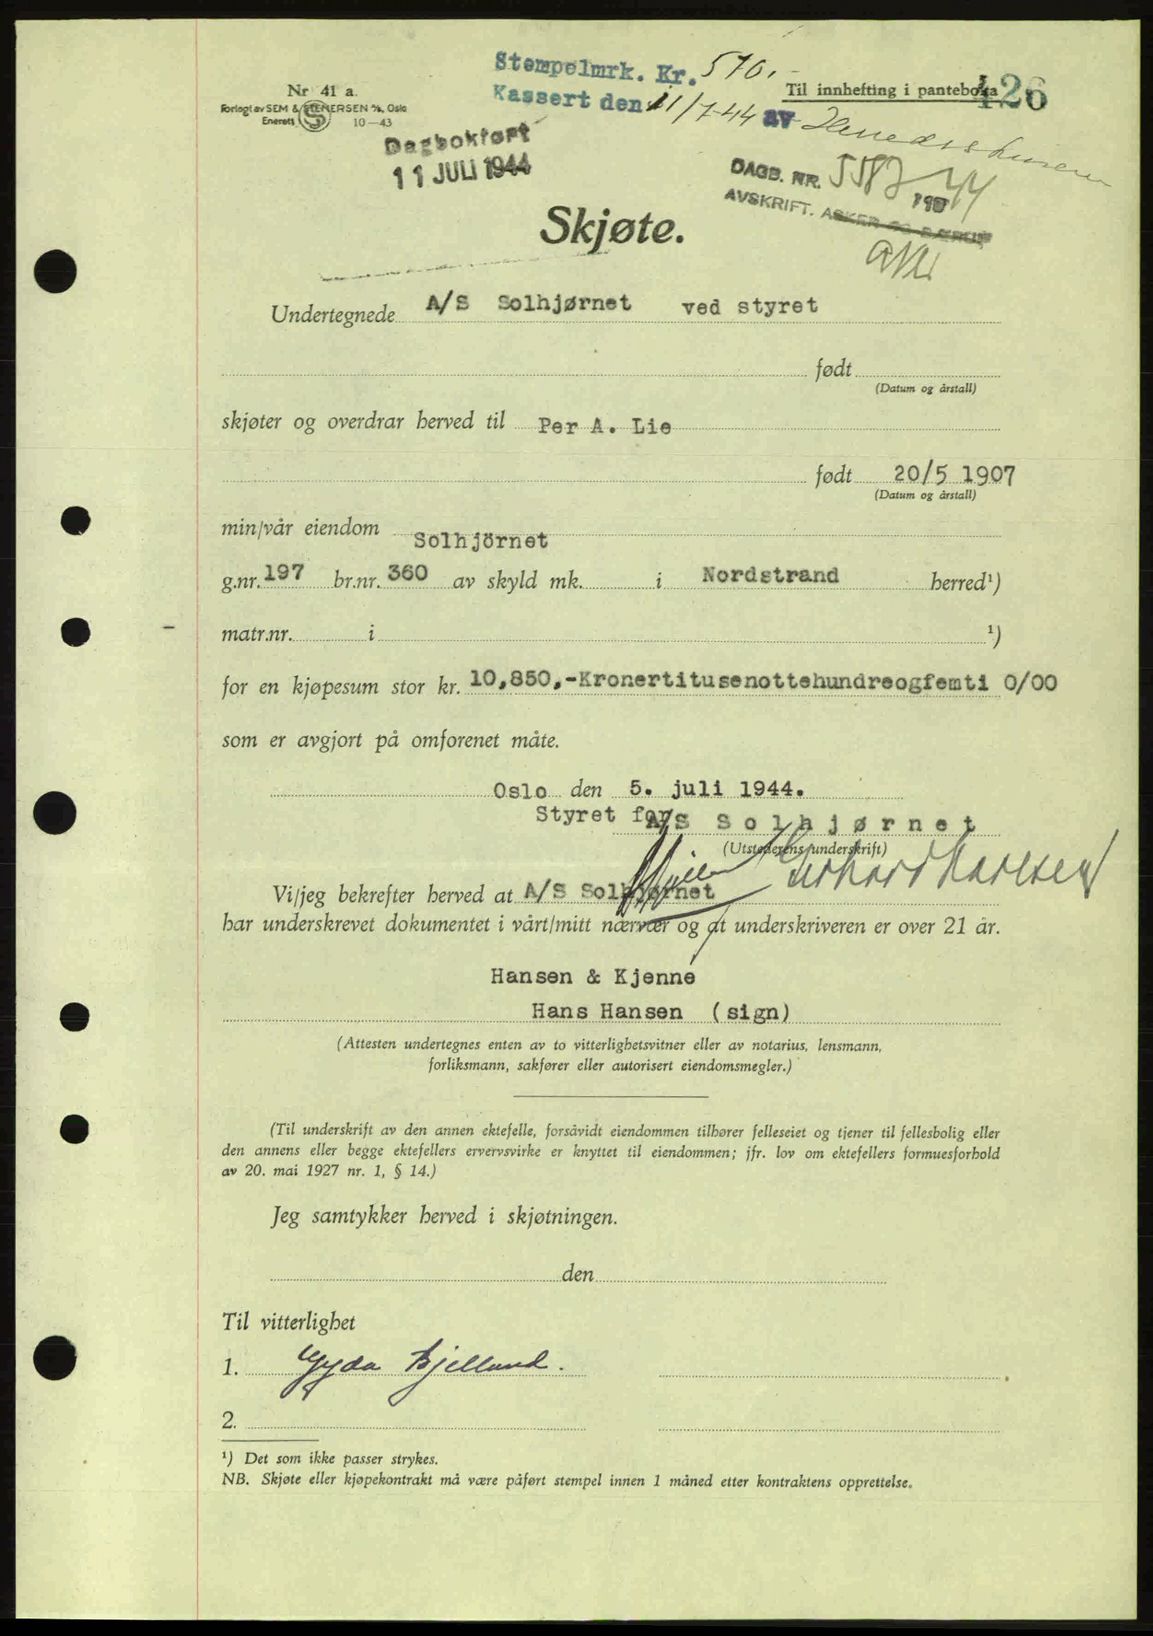 Stempelmrk. Kr. 570,-
Kassert den 11/7-44 av
Nr 41 a.
Forlagt av SEM & STENERSEN A/S, Oslo
Enerett S 10—43
Til innhefting i panteboka
426
Dagbokført
11 JULI 1944
DAGB. NR. 5582 19 44
AVSKRIFT. ASKER OG BÆRUM
Skjøte.
Undertegnede A/S Solhjørnet ved styret
født
(Datum og årstall)
skjøter og overdrar herved til Per A. Lie
født 20/5 1907
(Datum og årstall)
min/vår eiendom Solhjörnet
g.nr. 197 br.nr. 360 av skyld mk. i Nordstrand herred¹)
matr.nr. i ¹)
for en kjøpesum stor kr. 10,850,-Kronertitusenottehundreogfemti 0/00
som er avgjort på omforenet måte.
Oslo den 5. juli 1944.
Styret for A/S Solhjørnet
(Utstederens underskrift)
Gerhard Karlsen
Vi/jeg bekrefter herved at A/S Solhjørnet
har underskrevet dokumentet i vårt/mitt nærvær og at underskriveren er over 21 år.
Hansen & Kjenne
Hans Hansen (sign)
(Attesten undertegnes enten av to vitterlighetsvitner eller av notarius, lensmann,
forliksmann, sakfører eller autorisert eiendomsmegler.)
(Til underskrift av den annen ektefelle, forsåvidt eiendommen tilhører felleseiet og tjener til fellesbolig eller
den annens eller begge ektefellers ervervsvirke er knyttet til eiendommen; jfr. lov om ektefellers formuesforhold
av 20. mai 1927 nr. 1, § 14.)
Jeg samtykker herved i skjøtningen.
den
Til vitterlighet
1. Gyda Bjelland.
2.
¹) Det som ikke passer strykes.
NB. Skjøte eller kjøpekontrakt må være påført stempel innen 1 måned etter kontraktens opprettelse.